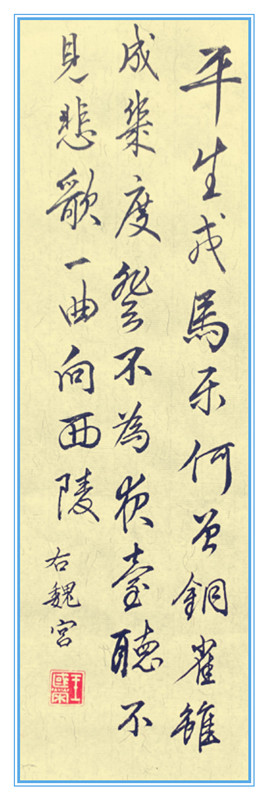 平生戎馬樂何曾銅雀雖
成幾度登不為夜臺聽不
見悲歌一曲向西陵
右魏宮